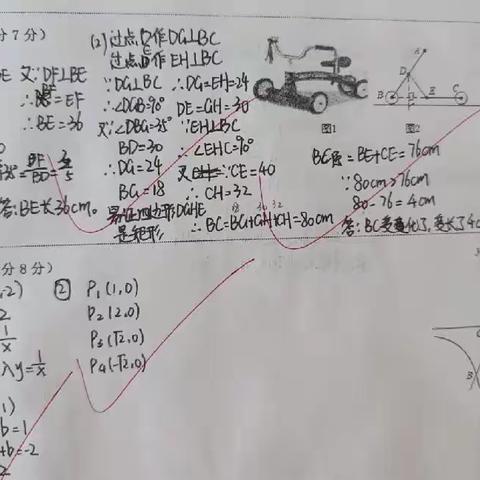 分7分)
BE 又∵DF⊥BE
∴BF=EF
∴BE=36
35°=BF/BD=3/5
答:BE长36cm。
(2)过点D作DG⊥BC
过点E作EH⊥BC
∵DG⊥BC
∴∠DGB=90°
又∵∠DBG=35°
BD=30
∴DG=24
BG=18
易证四边形DGHE
是矩形
∴DG=EH=24
DE=GH=30
∵EH⊥BC
∴∠EHC=90°
又∵CE=40
∴CH=32
18 30 32
∴BC=BG+GH+CH=80cm
图1
图2
A
D
B
F
E
C
BC原=BE+CE=76cm
∵80cm>76cm
80-76=4cm
答:BC变化了,变长了4c
分8分)
-2)
2
1/x
入y=1/x
1)
b=1
+b=-2
2
② P₁(1,0)
P₂(2,0)
P₃(√2,0)
P₄(-√2,0)
B